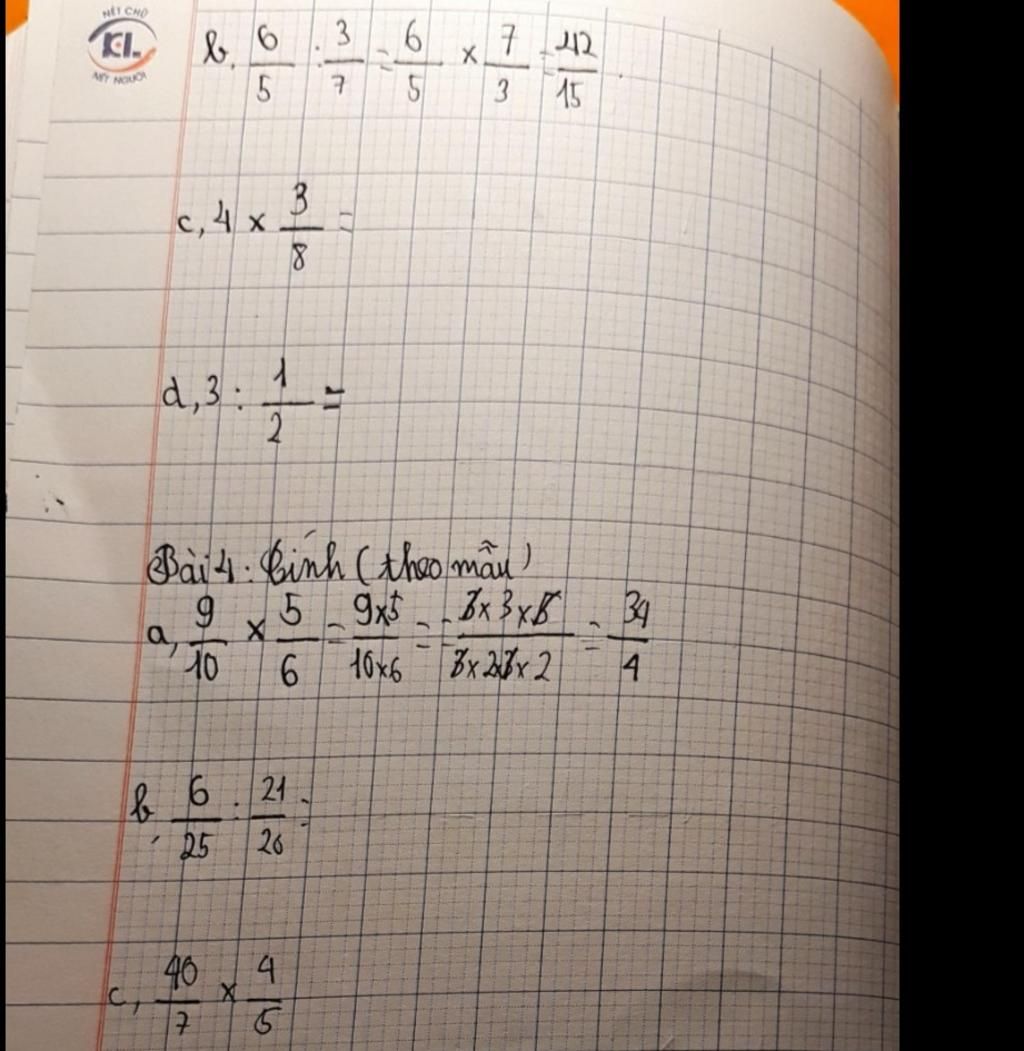 NÉT CHỮ
KL
NẾT NGƯỜI
b. 6/5 : 3/7 = 6/5 × 7/3 = 42/15.
c, 4 × 3/8 =
d, 3 : 1/2 =
Bài 4: Tính (theo mẫu)
a, 9/10 × 5/6 = 9×5/10×6 = 3×3×5/5×2×3×2 = 3/4
b, 6/25 : 21/20 =
c, 40/7 × 4/5